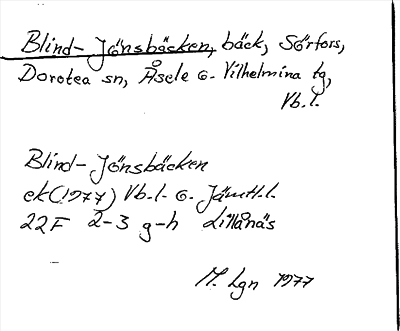 Blind-Jönsbäcken, bäck, Sörfors,
Dorotea sn, Åsele o. Vilhelmina tg,
Vb.l.
Blind-Jönsbäcken
ek(1977) Vb.l. o. Jämtl.l.
22F 2-3 g-h Lillånäs
M. Lgn 1977